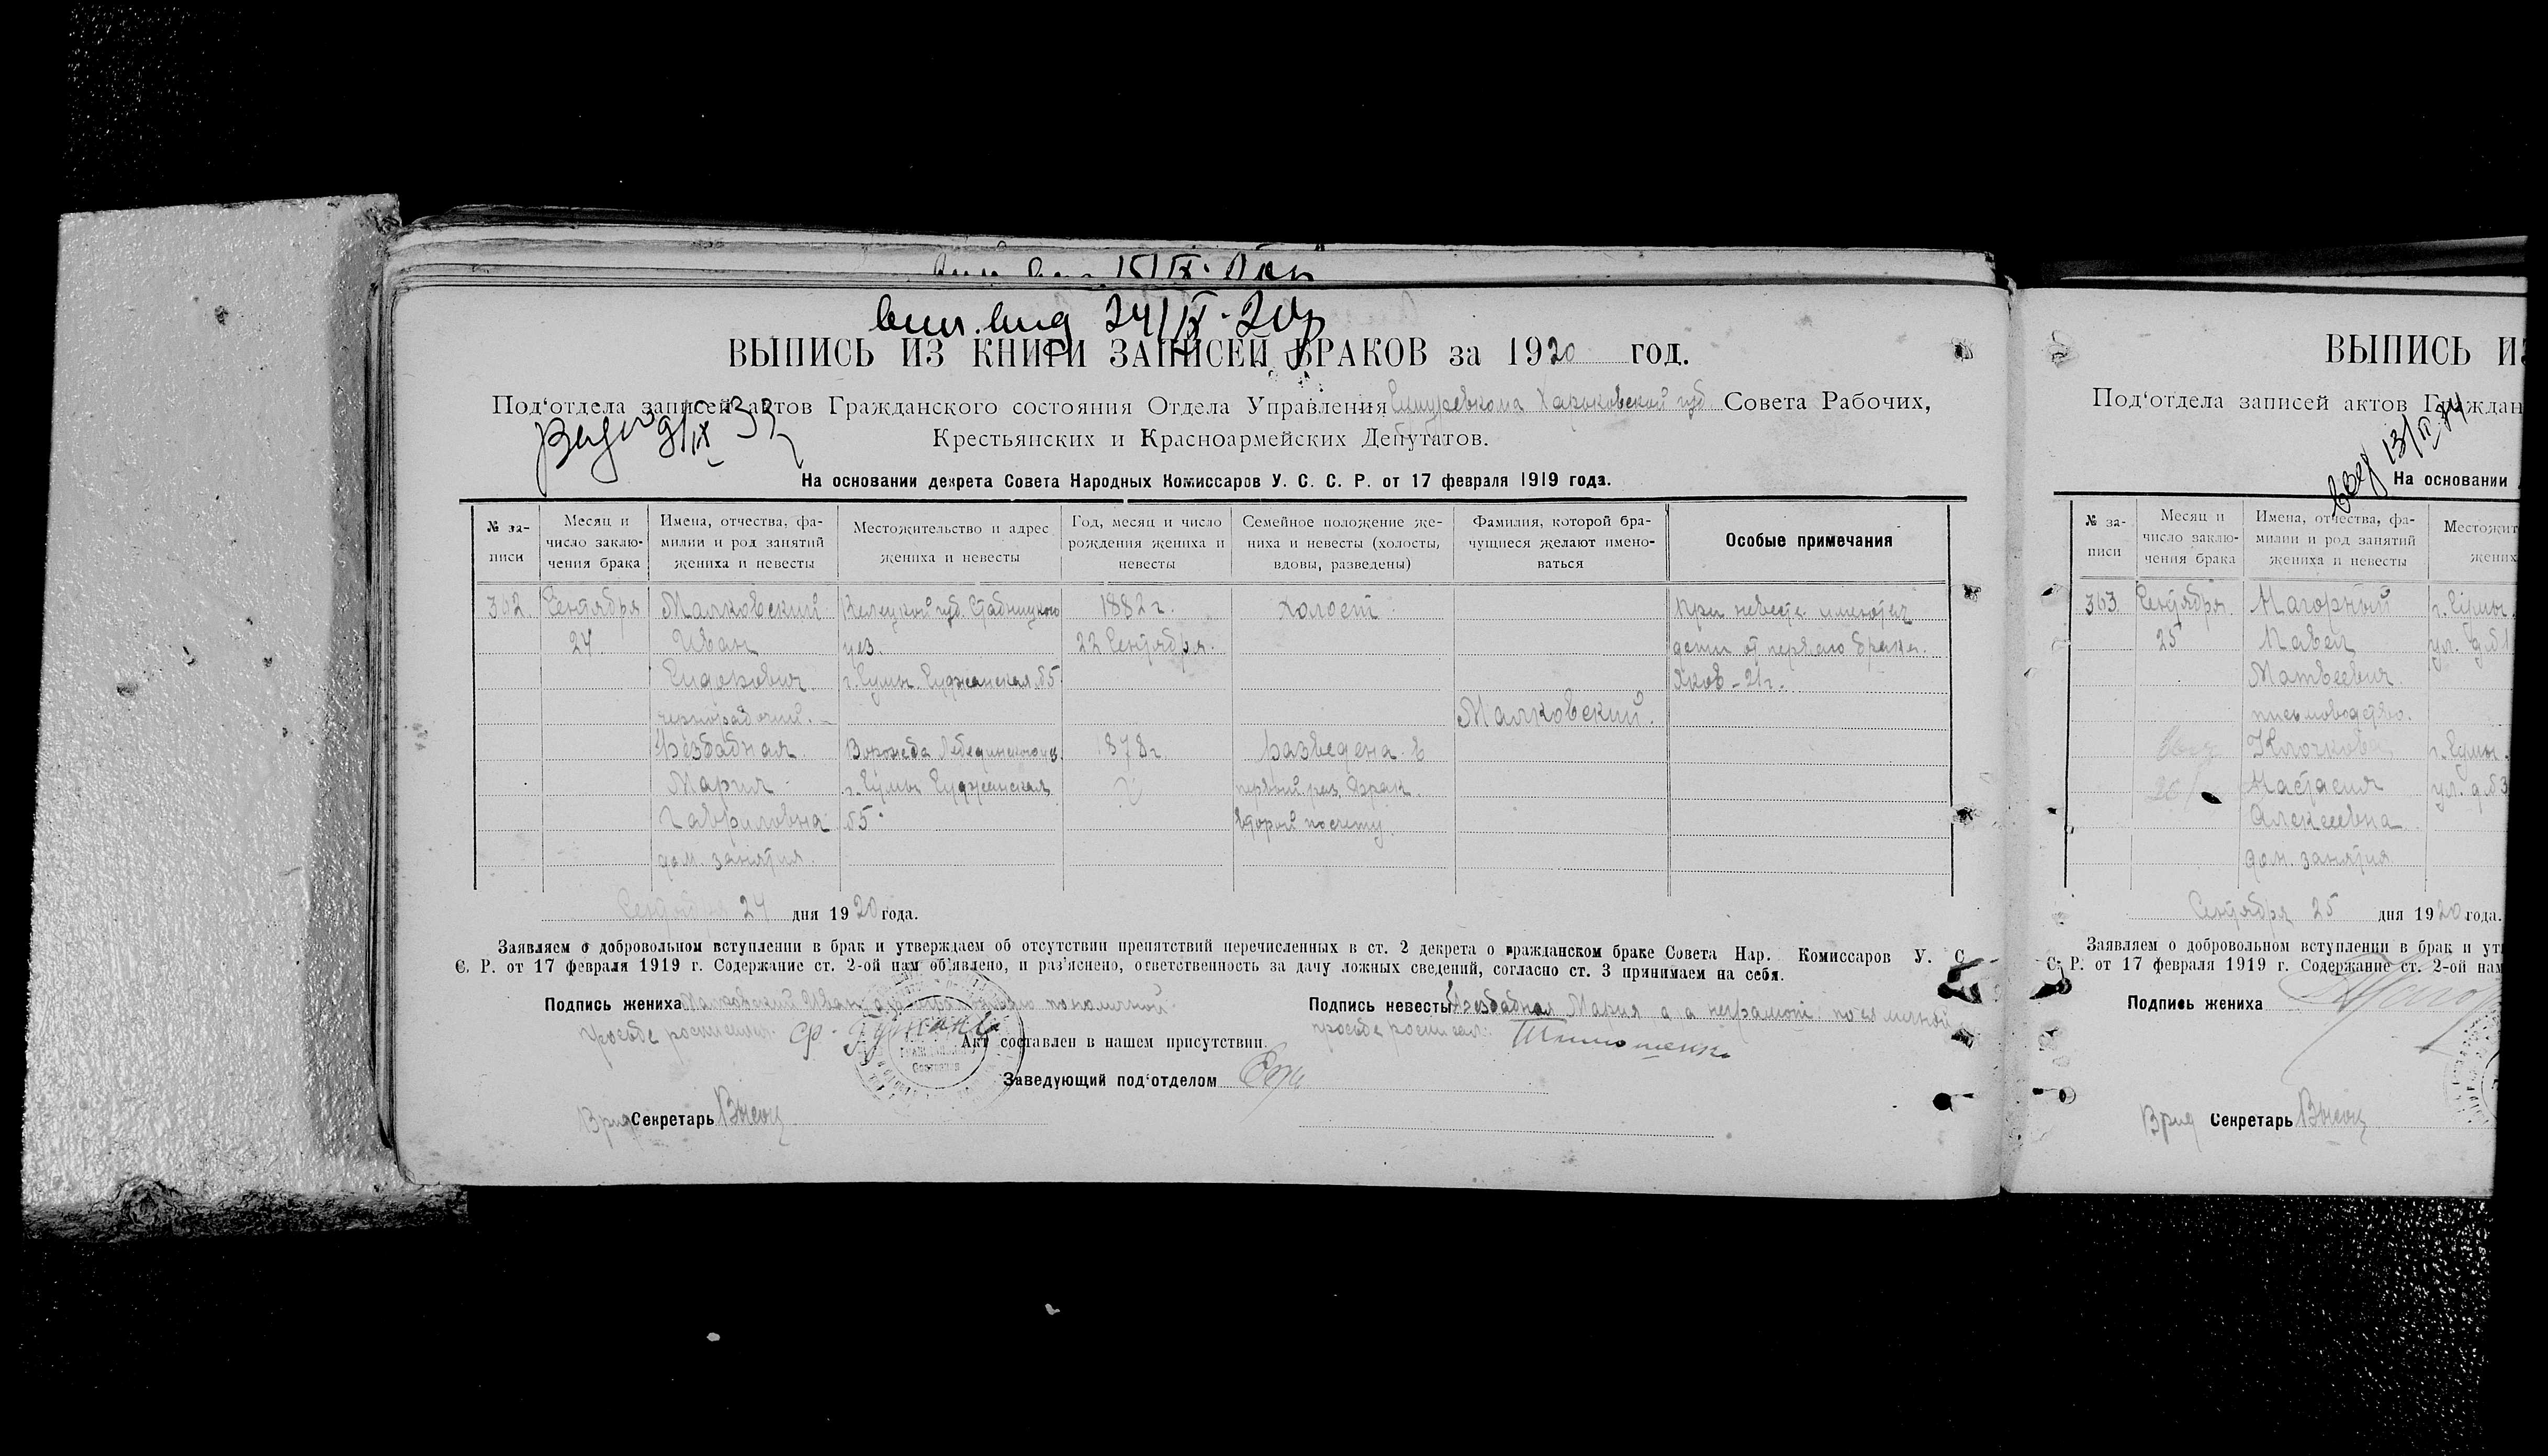 24/IX-20г
ВЫПИСЬ ИЗ КНИГИ ЗАПИСЕЙ БРАКОВ за 1920 год.
Под‘отдела записей актов Гражданского состояния Отдела Управления Харьковской губ. Совета Рабочих,
Крестьянских и Красноармейских Депутатов.
9/IX 33
На основании декрета Совета Народных Комиссаров У. С. С. Р. от 17 февраля 1919 года.
№ записи
Месяц и число заключения брака
Имена, отчества, фамилии и род занятий жениха и невесты
Местожительство и адрес жениха и невесты
Год, месяц и число рождения жениха и невесты
Семейное положение жениха и невесты (холосты, вдовы, разведены)
Фамилия, которой брачущиеся желают именоваться
Особые примечания
302. Сентября Малковский Келецкой губ. 1882 г. холост. При невесте имеются
24. Иван уез. 22 Сентября. дети от первого брака.
г. Сумы. Суджанская 65 Яков - 21 г.
чернорабочий. Малковский.
Ворожба Лебединского уез. 1878 г. Разведена. в
Мария г. Сумы Суджанская первый раз. брак
Гавриловна 65. второй по счету.
дом. занятия.
Сентября 24 дня 1920 года.
Заявляем о добровольном вступлении в брак и утверждаем об отсутствии препятствий перечисленных в ст. 2 декрета о гражданском браке Совета Нар. Комиссаров У. С.
С. Р. от 17 февраля 1919 г. Содержание ст. 2-ой нам об‘явлено, и раз‘яснено, ответственность за дачу ложных сведений, согласно ст. 3 принимаем на себя.
Подпись жениха Малковский Иван
Подпись невесты Мария а а неграмот. по ея личной
просьбе
просьбе Тимошенко
Акт составлен в нашем присутствии.
Заведующий под‘отделом
Врид Секретарь
ВЫПИСЬ ИЗ
Под‘отдела записей актов Граждан
13/
На основании
№ записи
Месяц и число заключения брака
Имена, отчества, фамилии и род занятий жениха и невесты
Местожит
жених
303 Сентября Нагорный г. Сумы.
25 Павел ул.
Матвеевич
письмоводство.
г. Сумы.
Настасия ул.
Алексеевна
дом. занятия
Сентября 25 дня 1920 года.
Заявляем о добровольном вступлении в брак и ут
С. Р. от 17 февраля 1919 г. Содержание ст. 2-ой нам
Подпись жениха
Врид Секретарь